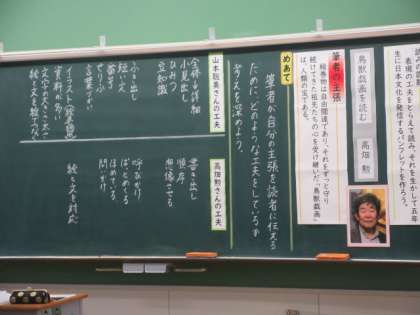 表現の工夫をとらえて読み、それを生かして五年
生に日本文化を発信するパンフレットを作ろう。
鳥獣戯画を読む
高畑　勲
筆者の主張
絵巻物は自由闊達であり、それをずっと守り
続けてきた祖先たちの心を受け継いだ「鳥獣戯画」
は、人類の宝である。
めあて
筆者が自分の主張を読者に伝える
ために、どのような工夫をしているか
考えを深めよう。
山本聡美さんの工夫
全体→詳細
小見出し
ひみつ
豆知識
ふき出し
短い文
番号
せりふ
言葉づかい
イラスト
資料が多い
文字の大きさ・太さ
絵と文を絵でつなぐ
高畑勲さんの工夫
書き出し
順序
想像させる
呼びかけ
ほめている
問いかけ
絵と文を対応